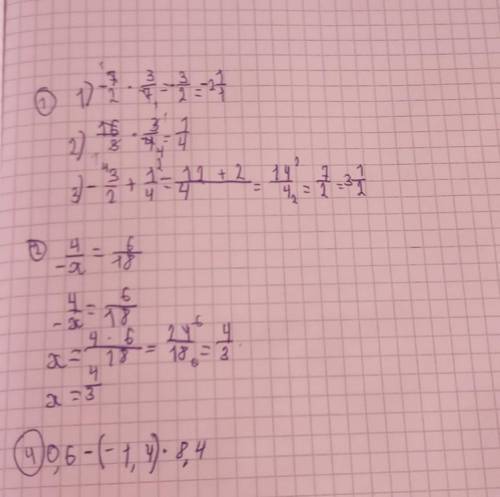 ① 1) -7/2 · 3/7 = -3/2 = -2 1/1
2) 16/3 · 3/4 = 1/4
3) - 3/2 + 1/4 = 12 + 2/4 = 14/4 = 7/2 = 3 1/2
② 4/-x = 6/18
-4/x = 6/18
x = 4 · 6/18 = 24/18 = 4/3
x = 4/3
④ 0,6 - (-1,4) · 8,4